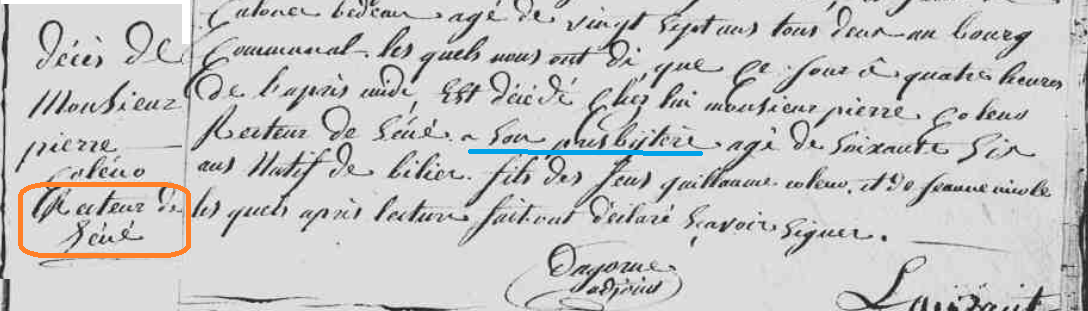 décès de
Monsieur
pierre
Coléno
Recteur de
Séné
bedeau agé de vingt Sept ans tous deux au bourg
Communal. les quels nous ont di que Ce jour à quatre heures
de l'apris midi, Est décédé Chez lui monsieur pierre Coleno
Recteur de Séné a Son presbytère agé de Soixante Six
ans Natif de bilier. fils des feus guillaume coleno. et de jeanne nicole
les quels après lecture fait ont déclaré Sçavoir Signer.
Dagorne
adjoint